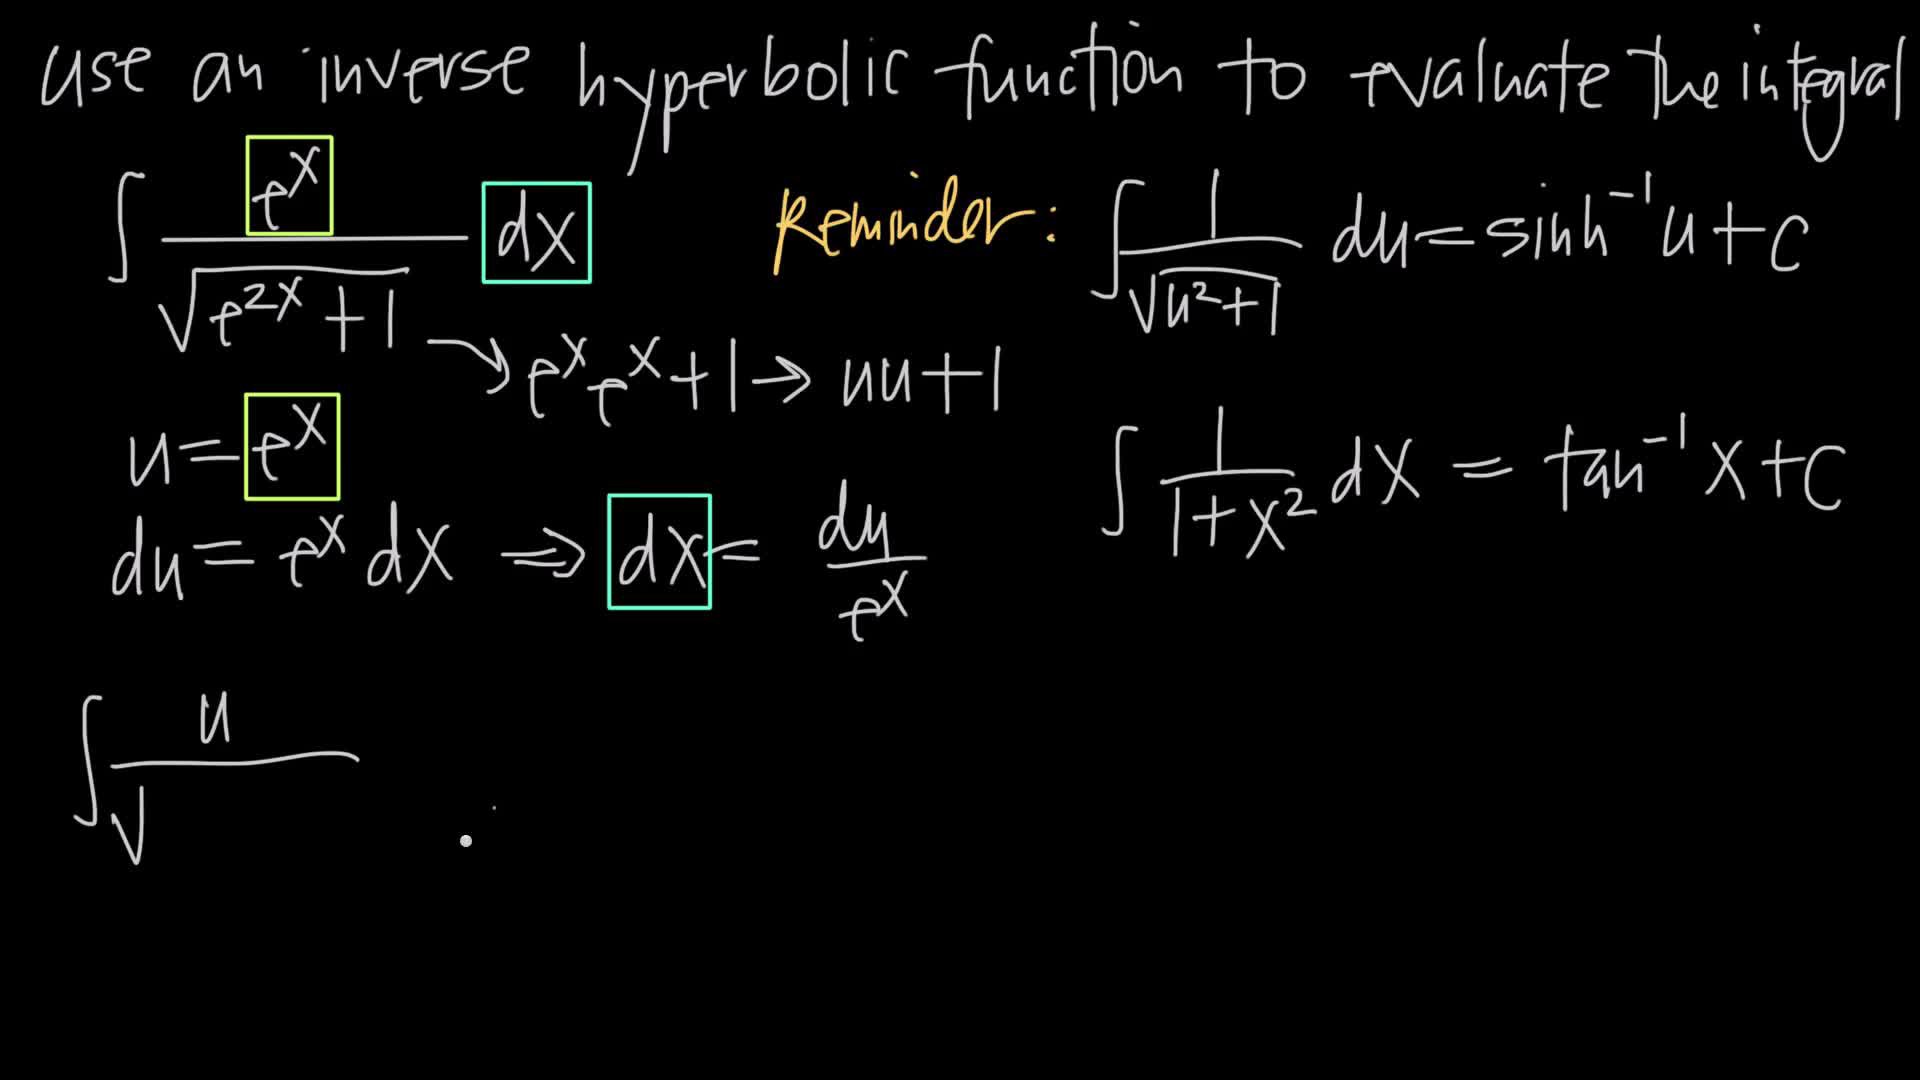 use an inverse hyperbolic function to evaluate the integral
∫ e^x / √(e^(2x) + 1) dx
Reminder: ∫ 1 / √(u² + 1) du = sinh⁻¹ u + c
→ e^x e^x + 1 → uu + 1
u = e^x
∫ 1 / (1 + x²) dx = tan⁻¹ x + c
du = e^x dx ⇒ dx = du / e^x
∫ u / √